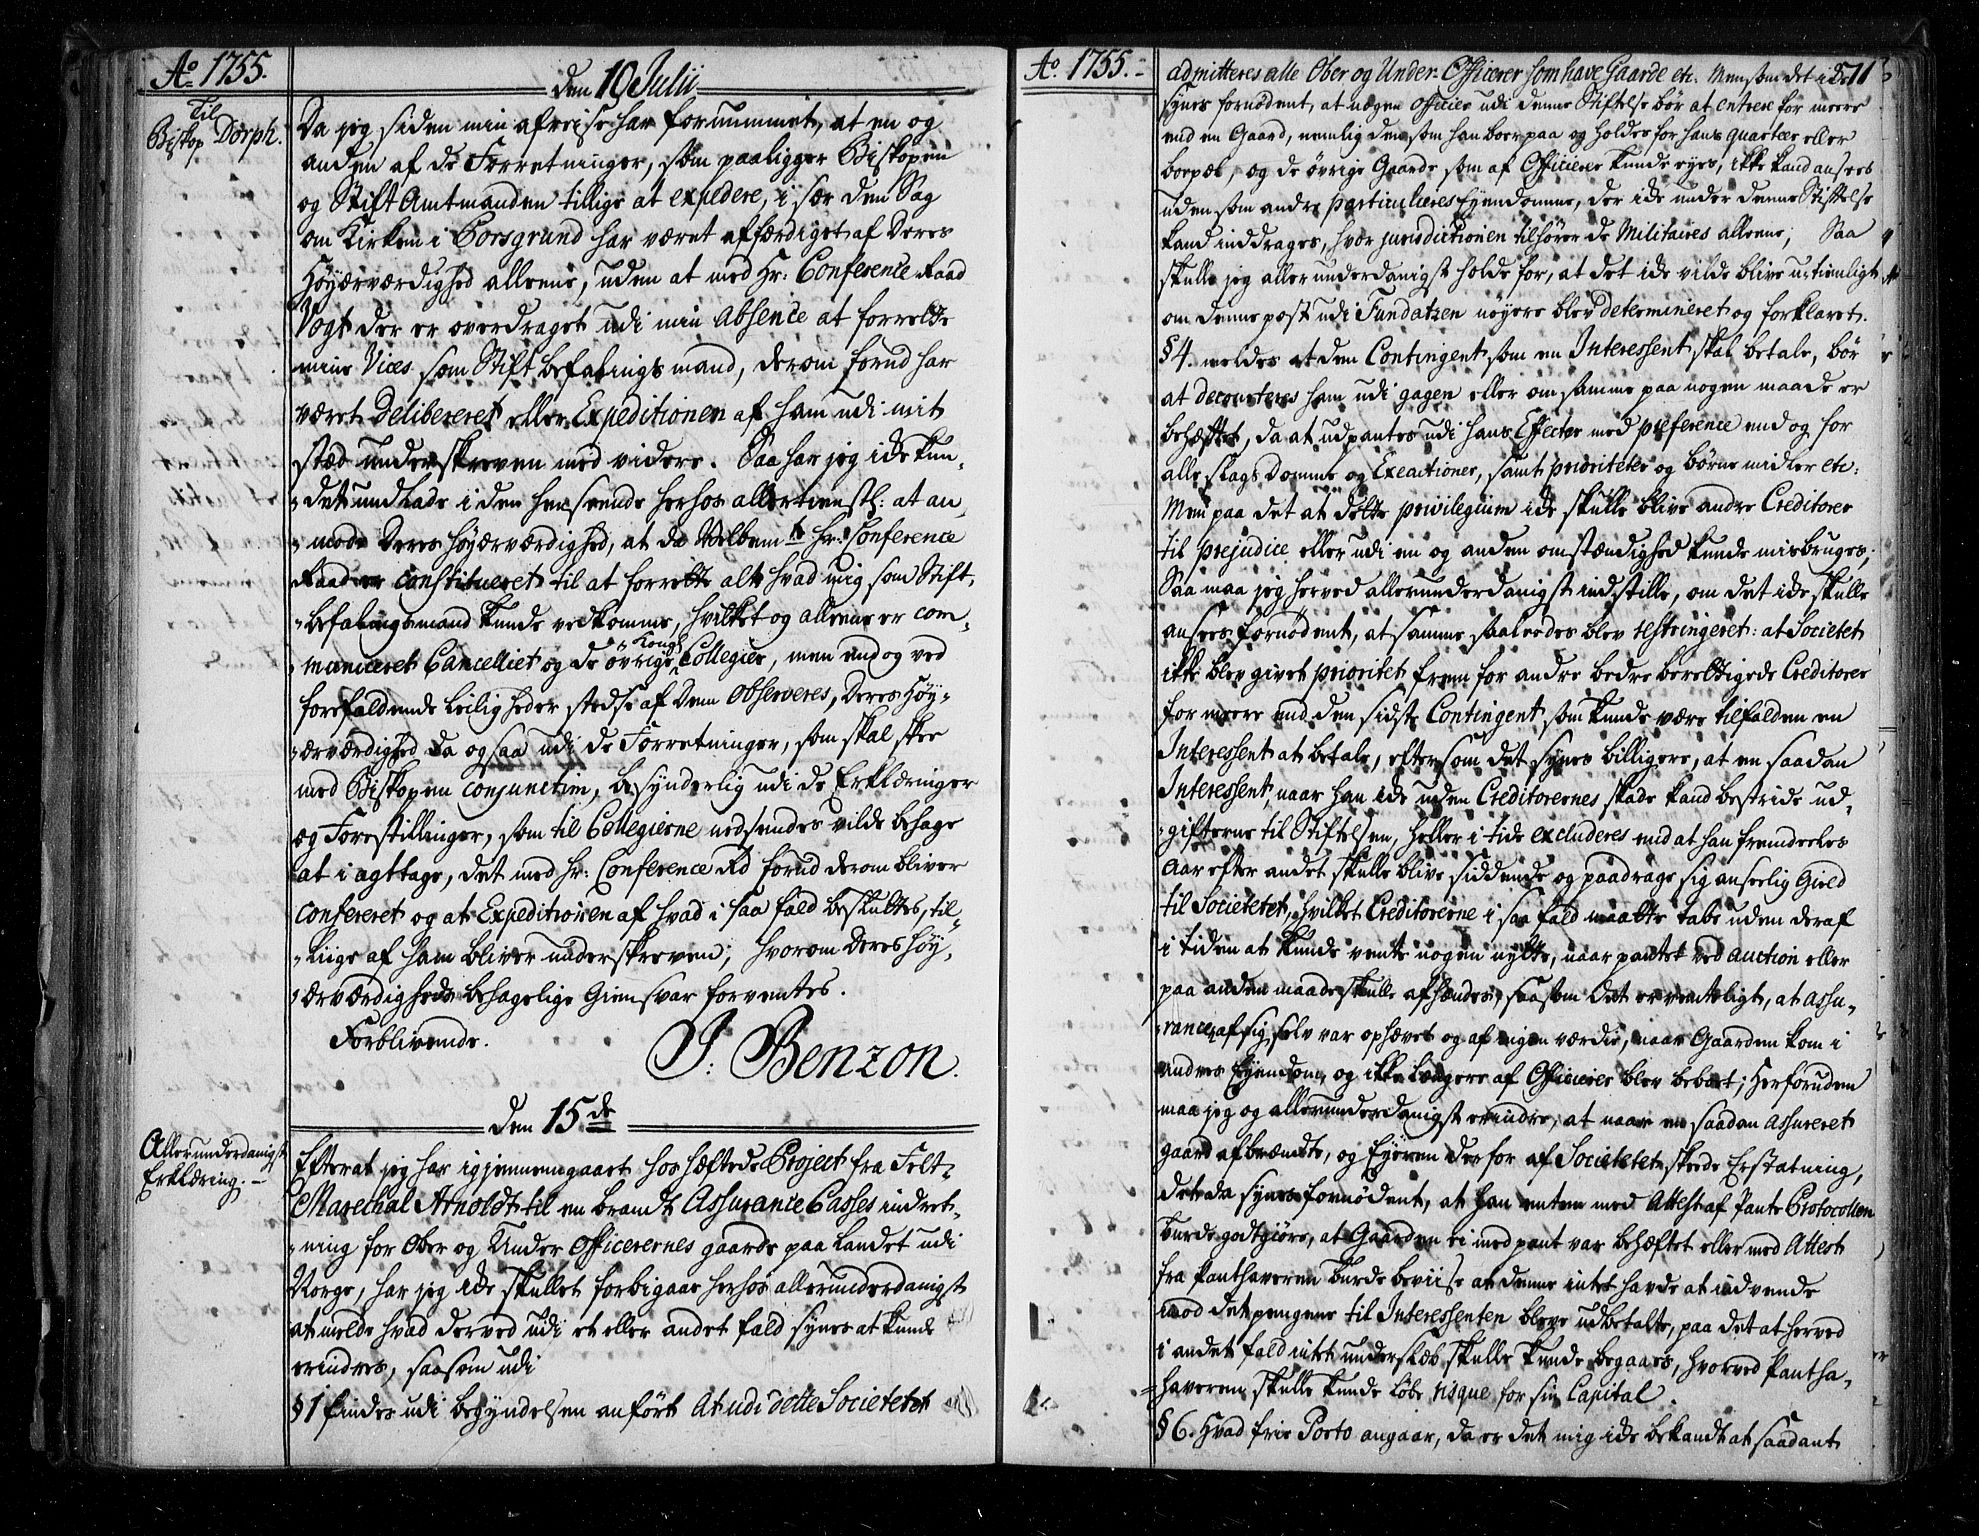 Ao 1755.
den 10 Julii
Til
Biskop Dorph.
Da jeg siden min afreise har fornummet, at en og
anden af de Forretninger, som paaligger Biskopen
og StiftAmtmanden tillige at expedere, i sær den Sag
om Kirken i Porsgrund har været affærdiget af Deres
Høyærværdighed alleene, uden at med Hr: Conference Raad
Vogt der er overdraget udi min Absence at forrette
mine Vices som Stiftbefalingsmand, derom forud har
været Delibereret eller Expeditionen af ham udi mit
stæd underskreven med videre. Saa har jeg icke kun-
det undlade i den henseende herhos allertienstl: at an-
mode Deres høyærværdighed, at da Velbemte hr: Conference
Raad er constitueret til at forrette alt hvad mig som Stift-
befalingsmand kunde vedkomme, hvilket og alleene er com-
municeret Cancelliet og de øvrige Kongl: Collegier, men endog ved
forefaldende Leiligheder stedse af Dem observeres, Deres Høy-
ærværdighed da ogsaa udi de Forretninger, som skal skee
med Biskopen conjunctim, besynderlig udi de Erklæringer
og Forestillinger, som til Collegierne nedsendes vilde behage
at i agttage, det med hr: Conference Rd forud derom bliver
confereret og at Expeditionen af hvad i saa fald besluttes, til-
liige af ham bliver underskreven; hvorom Deres høy-
ærværdigheds behagelige Giensvar forventes.
Forblivende.
J: Benzon.
den 15de
Allerunderdanigst
Erklæring.
Efterat jeg har igjennemgaaet hoshæftede Project fra Felt-
Marechal Arnoldt til en brandt Assurance Casses indret-
ning for Ober og Under Officerernes gaarde paa Landet udi
Norge, har jeg icke skullet forbigaae herhos allerunderdanigst
at melde hvad derved udi et eller andet fald synes at kunde
erindres, saasom udi
§ 1 findes udi begyndelsen anført At udi dette Societetet
Ao. 1755.
571
admitteres alle Ober og Under-Officerer som have Gaarde etc. Men som det icke
synes fornødent, at nogen officier udi denne Stiftelse bør at entrere for meere
end en Gaard, nemlig den som han boer paa og holdes for hans quarteer eller
boepæl, og de øvrige Gaarde som af Officierer kunde eyes, ikke kand ansees
uden som andre particulieres Eyendomme, der icke under denne Stiftelse
kand inddrages, hvor jurisdictionen tilhører de Militaires alleene; Saa
skulle jeg allerunderdanigst holde for, at det icke vilde blive utienligt
om denne post udi Fundatzen nøyere blev determineret og forklaret.
§ 4. meldes at den Contingent som en Interessent skal betale, bør
at decourteres ham udi gagen eller om samme paa nogen maade er
behæftet, da at udpantes udi hans Effecter med præference end og for
alle slags Domme og Exeactioner, samt prioriteter og børne midler etc:
Men paa det at dette privilegium icke skulle blive andre Creditorer
til prejudice eller udi en og anden omstændighed kunde misbruges,
Saa maa jeg herved allerunderdanigst indstille, om det icke skulle
ansees fornødent, at samme saaledes blev restringeret: at Societet
ikke blev givet prioritet frem for andre bedre berettigede Creditorer
for meere end den sidste Contingent som kunde være tilfalden en
Interessent at betale, eftersom det synes billigere, at en saadan
Interessent, naar han icke uden Creditorernes skade kand bestride ud-
gifterne til Stiftelsen, heller i tide excluderes end at han fremdeeles
Aar efter andet skulle blive siddende og paadrage sig anseelig Gield
til Societetet, hvilket Creditorerne i saa fald maatte tabe uden deraf
i tiden at kunde vente nogen nytte, naar pantet ved auction eller
paa anden maade skulle afhændes, saasom det er venteligt, at assu-
rancen af sig selv var ophævet og af ingen værdie, naar Gaarden kom i
andres Eyendom, og ikke længere af Officierer blev beboet; Herforuden
maa jeg og allerunderdanigst erindre, at naar en saadan assureret
gaard afbrændte, og Eyeren derfor af Societetet skeede Erstatning,
det da synes fornødent, at han enten med Attest af Pante Protocollen
burde godtgiøre, at Gaarden ei med pant var behæftet eller med Attest
fra Panthaveren burde beviise at denne intet havde at indvende
imod det pengene til Interessenten bleve udbetalte, paa det at herved
i andet fald intet underslæb skulle kunde begaaes, hvorved Pantha-
haveren skulle kunde løbe risque for sin Capital.
§ 6. Hvad frie Porto angaar, da er det mig icke bekandt at saadant